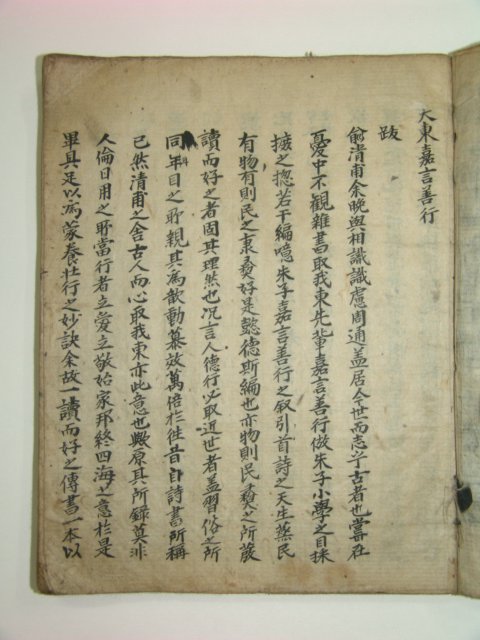 大東嘉言善行
跋
兪清甫余晩與相識識慮周通盖居今世而志乎古者也嘗在
憂中不觀雜書取我東先輩嘉言善行倣朱子小學之目採
摭之揔若干編噫朱子嘉言善行之叙引首詩之天生蒸民
有物有則民之秉彛好是懿德斯編也亦物則民彛之所蔵
讀而好之者固其理然也况言人德行必取近世者盖習俗之所
同年目之所親其爲歆動慕效萬倍於徃昔自詩書所稱
已然清甫之舍古人而心取我東亦此意也歟原其所錄莫非
人倫日用之所當行者立愛立敬始家邦終四海之意於是
畢具足以爲蒙養壯行之妙訣余故一讀而好之傳書一本以